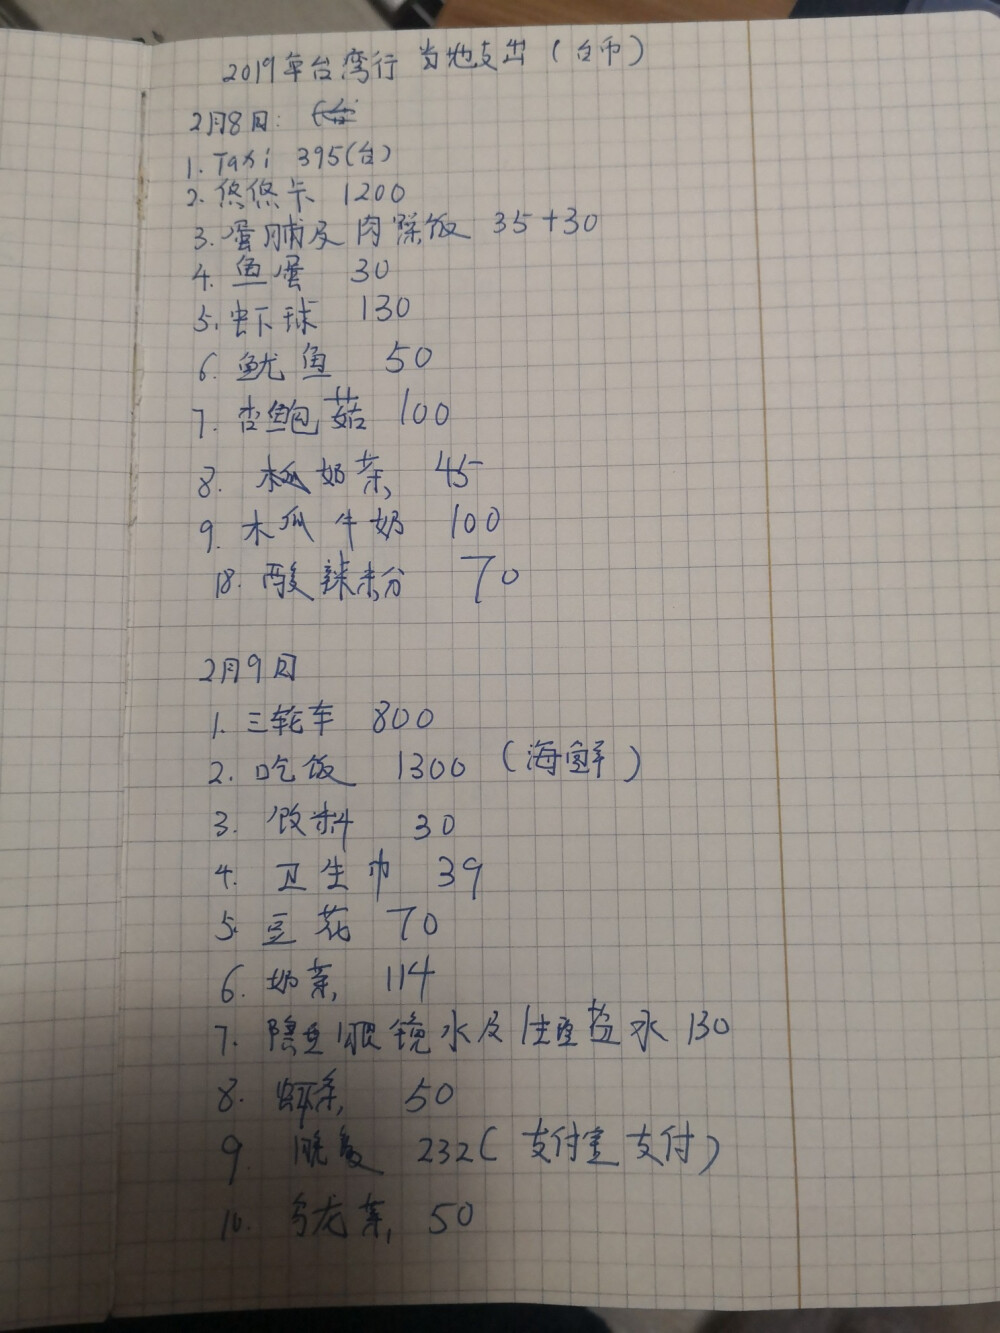 2019年台湾行 当地支出（台币）
2月8日：
1. Taxi 395(台)
2. 悠悠卡 1200
3. 蛋脯及肉踩饭 35+30
4. 鱼蛋 30
5. 虾球 130
6. 鱿鱼 50
7. 杏鲍菇 100
8. 奶茶 45
9. 木瓜牛奶 100
10. 酸辣粉 70
2月9日
1. 三轮车 800
2. 吃饭 1300（海鲜）
3. 饮料 30
4. 卫生巾 39
5. 豆花 70
6. 奶茶 114
7. 隐型眼镜水及生理盐水 130
8. 50
9 晚餐 232（支付宝支付）
10. 乌龙茶 50